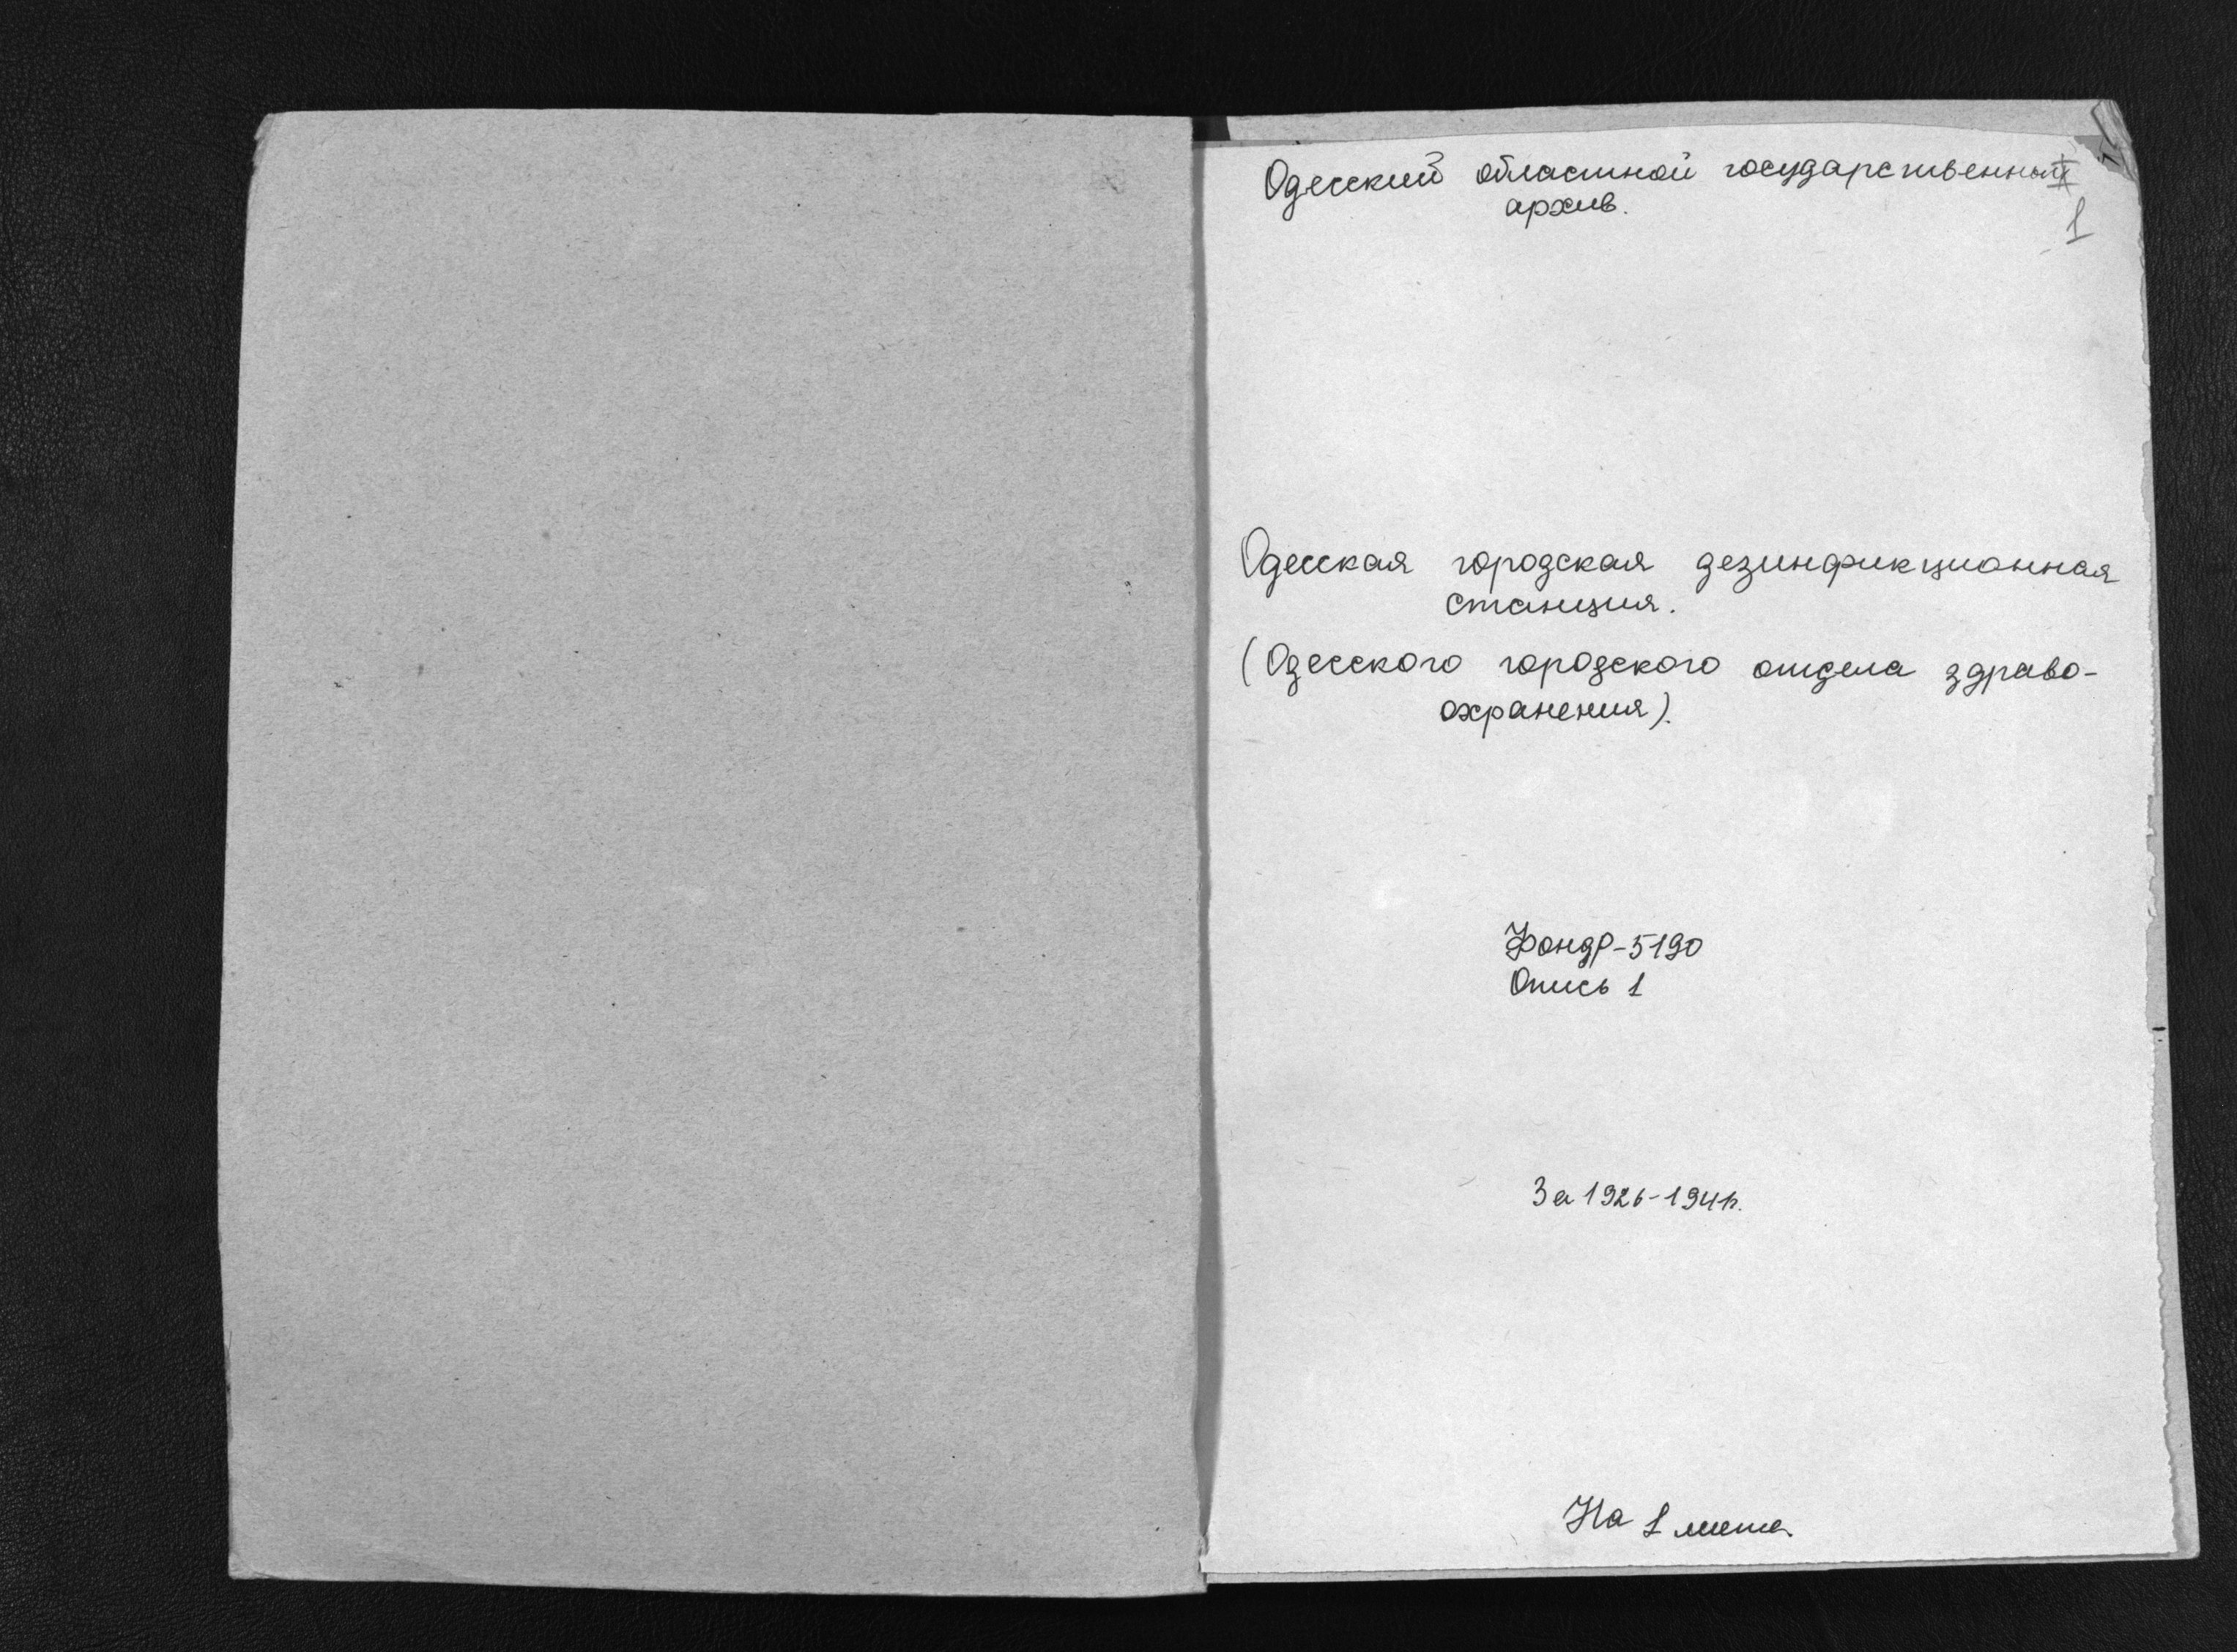 Одесский областной государственный
архив.
1
Одесская городская дезинфикционная
станция.
(Одесского городского отдела здраво-
охранения).
Фонд Р-5190
Опись 1
За 1926-1941г.
На 1 листе